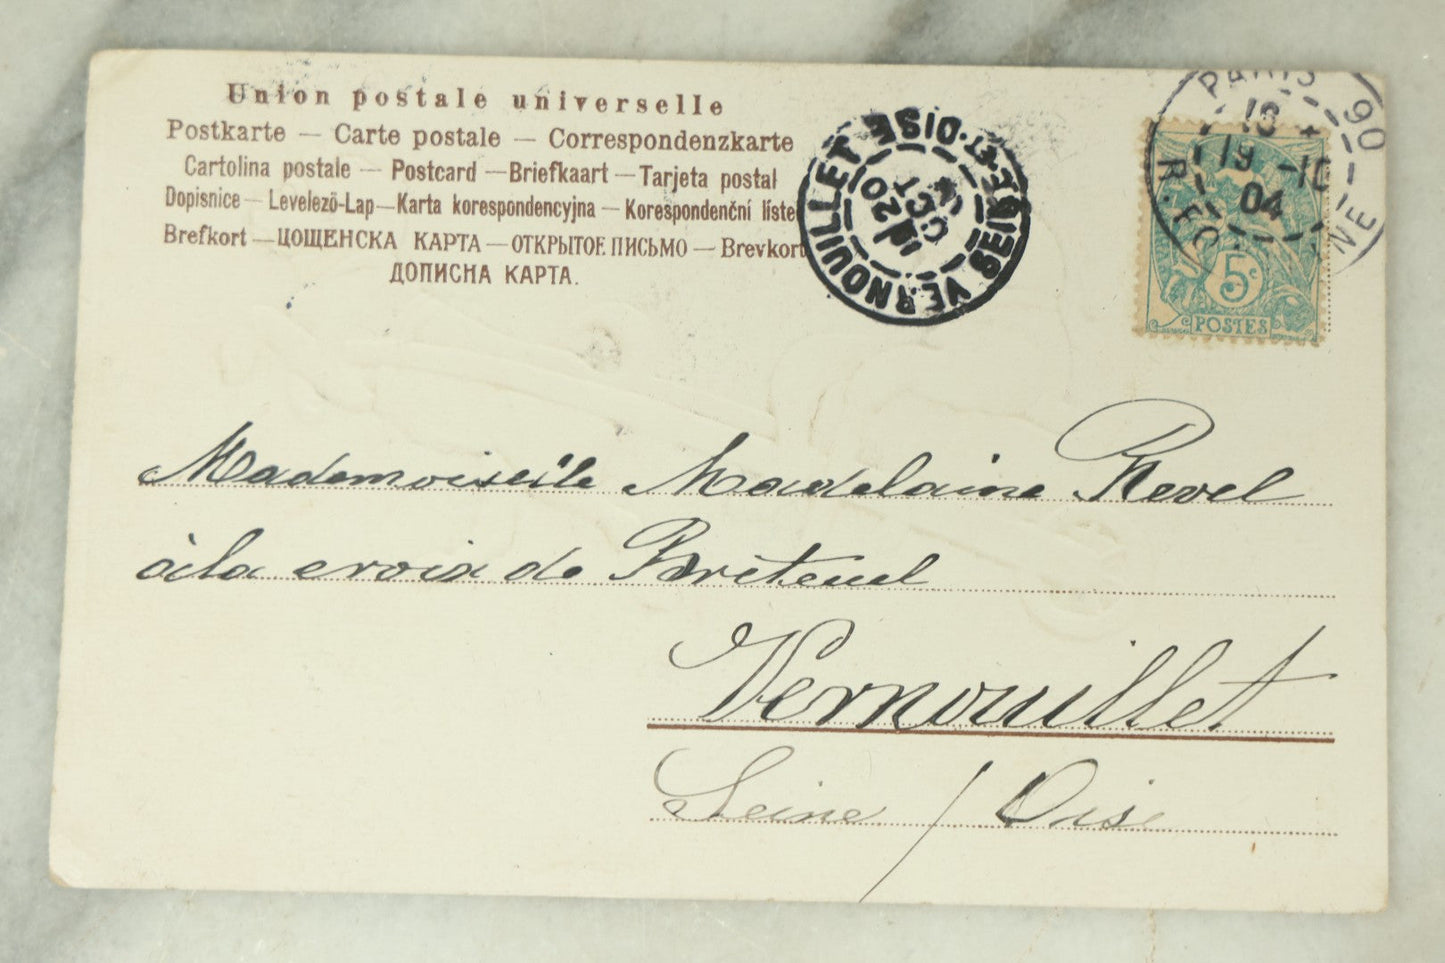 Union postale universelle
Postkarte — Carte postale — Correspondenzkarte
Cartolina postale — Postcard — Briefkaart — Tarjeta postal
Dopisnice — Levelezö-Lap — Karta korespondencyjna — Korespondenční líste
Brefkort — ЦОЩЕНСКА КАРТА — ОТКРЫТОЕ ПИСЬМО — Brevkort
ДОПИСНА КАРТА.
VERNOUILLET SEINE-ET-OISE
20
OCT
04
PARIS 90
19 -10
04
5c
POSTES
Mademoiselle Madelaine Revel
à la croix de Briteuel
Vernouillet
Seine / Oise